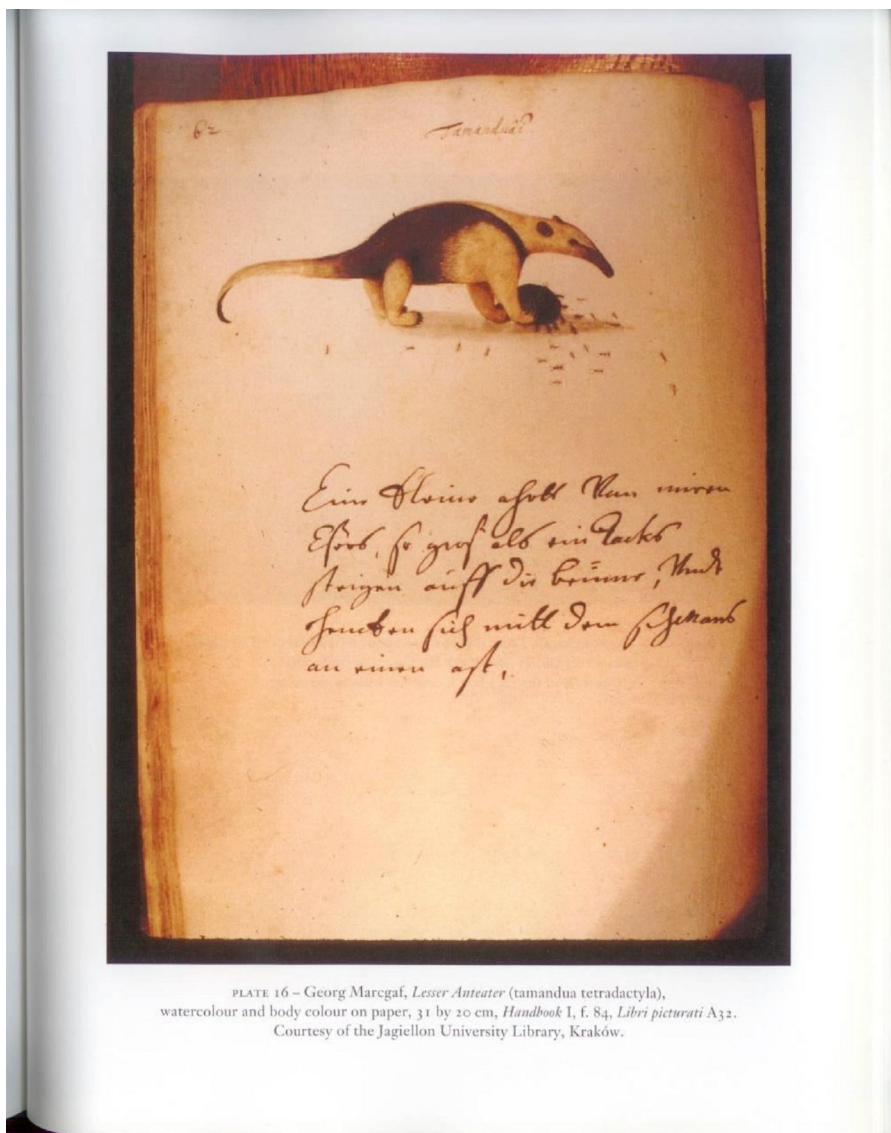 62
Tamanduaî
Eine kleine ahrtt Van miren
Eßers, so groß als ein Dacks
steigen auff die beüme, Undt
hencken sich mitt dem schwans
an einen ast,
PLATE 16 – Georg Marcgaf, Lesser Anteater (tamandua tetradactyla),
watercolour and body colour on paper, 31 by 20 cm, Handbook I, f. 84, Libri picturati A32.
Courtesy of the Jagiellon University Library, Kraków.